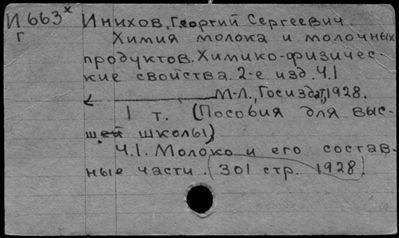 И 663ˣ Инихов, Георгий Сергеевич.
Г Химия молока и молочных
продуктов. Химико-физичес-
кие свойства. 2-е изд. Ч.1
М-Л., Госиздат, 1928.
1 т. (Пособия для выс-
шей школы)
Ч.1. Молоко и его состав-
ные части. (301 стр. 1928)